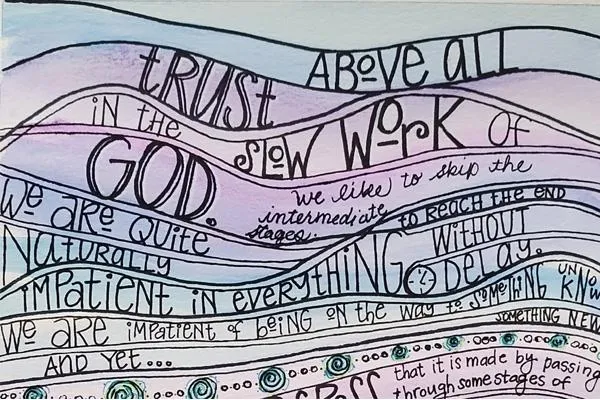 ABOVE ALL
tRUSt
iN tHE SLOW WORK OF
GOD.
WE ARE QUitE
NATURALLY
iMPAtiENt iN EVERYtHiNG
we like to skip the
intermediate
stages.
to REACH tHE END
WitHOUt
DELAY.
WE ARE iMPAtiENt OF BEiNG ON tHE WAY to SOMEtHiNG UNKNOW
SOMEtHiNG NEW
AND YEt...
that it is made by passing
through some stages of